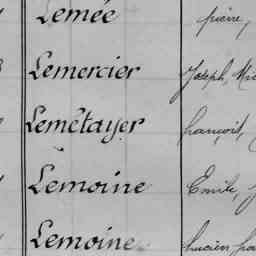 Lemée pierre,
Lemercier Joseph,
Lemétayer françois,
Lemoine Emile,
Lemoine lucien